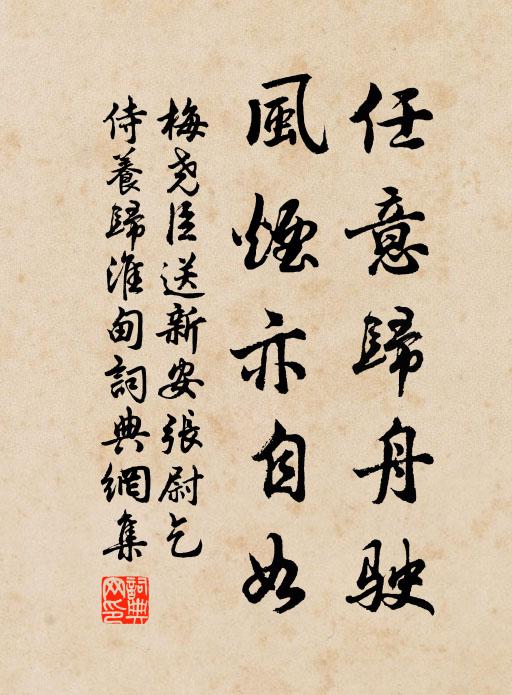 任意歸舟駛
風煙亦自如
梅堯臣送新安張尉乞
侍養歸淮甸詞典網集
詞典
网印